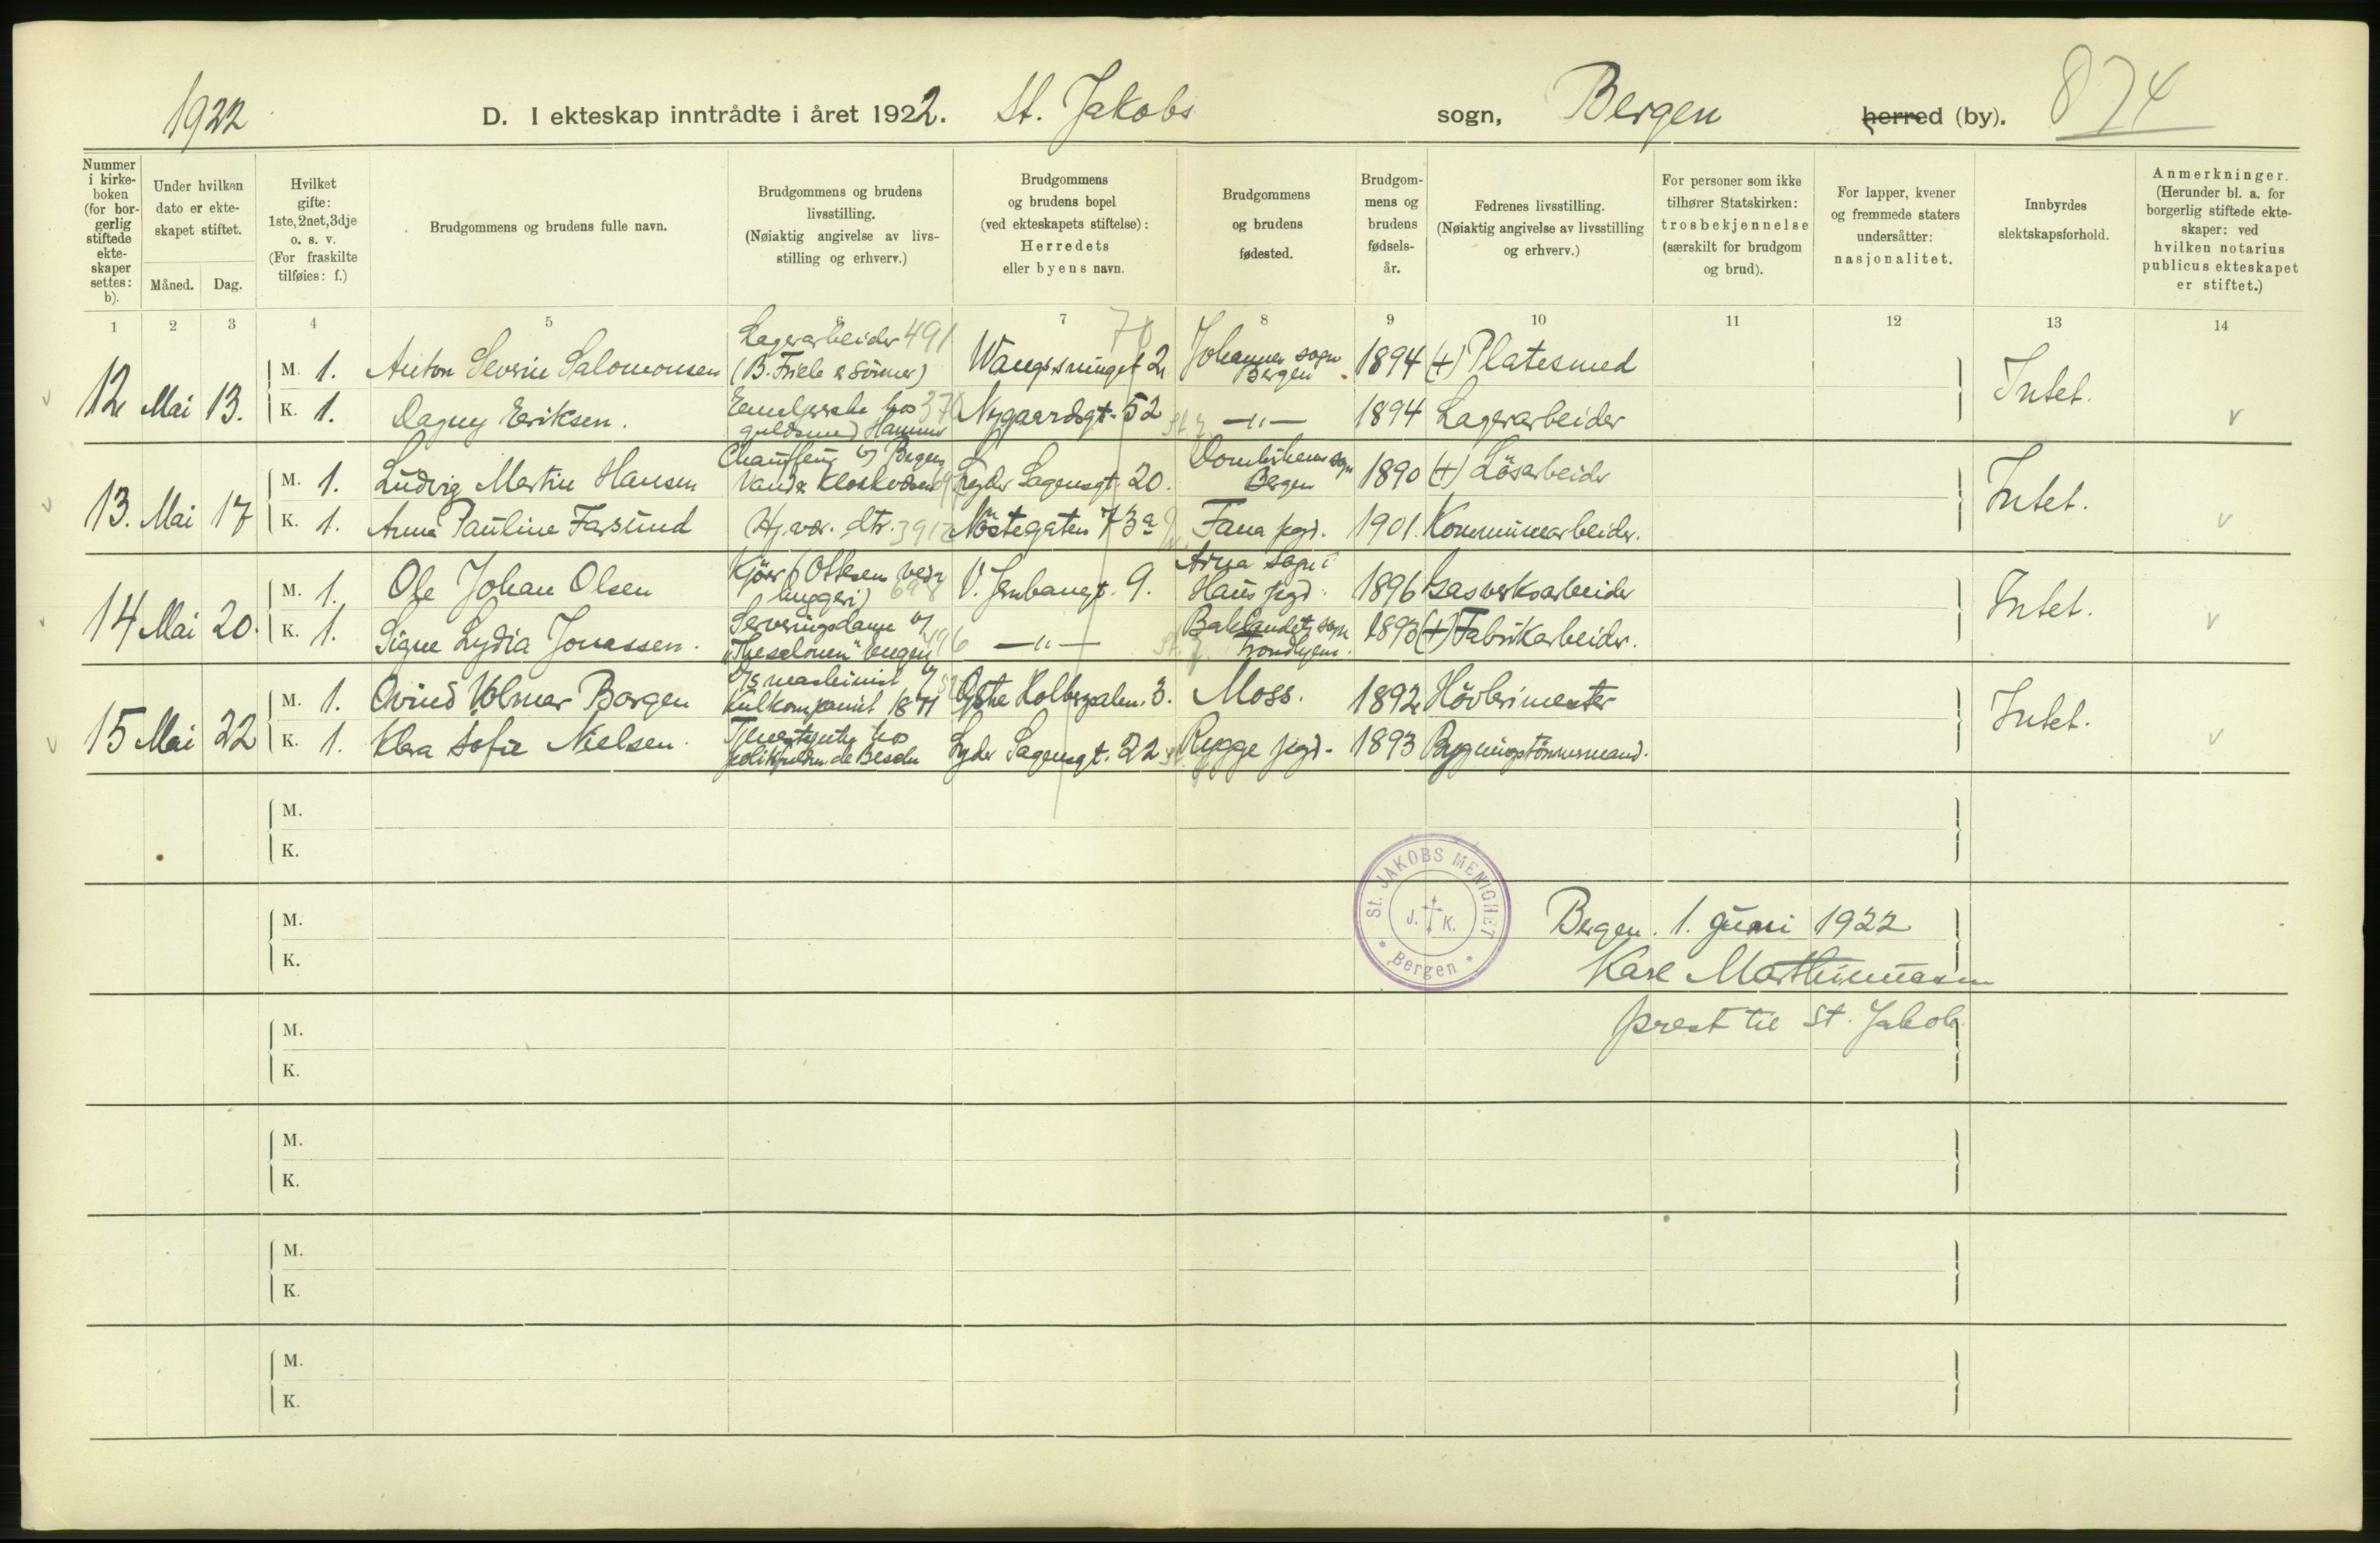 1922 D. I ekteskap inntrådte i året 1922. St. Jakobs sogn, Bergen herred (by). 874
Nummer i kirke-boken (for bor-gerlig stiftede ekte-skaper settes: b).
Under hvilken dato er ekte-skapet stiftet.
Måned. Dag.
Hvilket gifte: 1ste, 2net, 3dje o. s. v. (For fraskilte tilføies: f.)
Brudgommens og brudens fulle navn.
Brudgommens og brudens livsstilling. (Nøiaktig angivelse av livs-stilling og erhverv.)
Brudgommens og brudens bopel (ved ekteskapets stiftelse): Herredets eller byens navn.
Brudgommens og brudens fødested.
Brudgom-mens og brudens fødsels-år.
Fedrenes livsstilling. (Nøiaktig angivelse av livsstilling og erhverv.)
For personer som ikke tilhører Statskirken: trosbekjennelse (særskilt for brudgom og brud).
For lapper, kvener og fremmede staters undersåtter: nasjonalitet.
Innbyrdes slektskapsforhold.
Anmerkninger. (Herunder bl. a. for borgerlig stiftede ekte-skaper: ved hvilken notarius publicus ekteskapet er stiftet.)
1 2 3 4 5 6 7 8 9 10 11 12 13 14
12 Mai 13. M. 1. Anton Severin Salomonsen Lagerarbeider 491 (B. Friele & Sönner) 2. Johannes sogn Bergen 1894 (+) Platesmed Intet.
K. 1. Dagny Eriksen. hos guldsmed Hammer Nygaardsgt. 52 —"— 1894 Lagerarbeider v
13. Mai 17 M. 1. Ludvig Martin Hansen Chauffeur Bergens Vand & Lyder Sagensgt. 20. Domkirkens sogn Bergen 1890 (+) Løsarbeider Intet.
K. 1. Anna Pauline Farsund Hj. vær. dtr. Nöstegaten 73a Fana pgd. 1901. Kommunearbeider. v
14 Mai 20. M. 1. Ole Johan Olsen Kjører (Ottesen vedhuggeri) 698 V. Jernbanegt. 9. Arna sogn i Haus pgd. 1896 Gasverksarbeider Intet.
K. 1. Signe Lydia Jonassen. Serveringsdame Bergen —"— Baklandets sogn Trondhjem. 1893 (+) Fabrikarbeider. v
15 Mai 22 M. 1. Øvind Volmar Borgen maskinist Kulkompaniet 1871 3. Moss. 1892 Høvlerimester Intet.
K. 1. Klara Sofie Nielsen. Tjenestepike hos Lyder Sagensgt. 22 Rygge pgd. 1893 Bygningstömmermand. v
M.
K.
M.
K.
St. JAKOBS MENIGHET
J. K.
Bergen
Bergen. 1. juni 1922
Karl Marthinussen
prest til St. Jakob
M.
K.
M.
K.
M.
K.
M.
K.